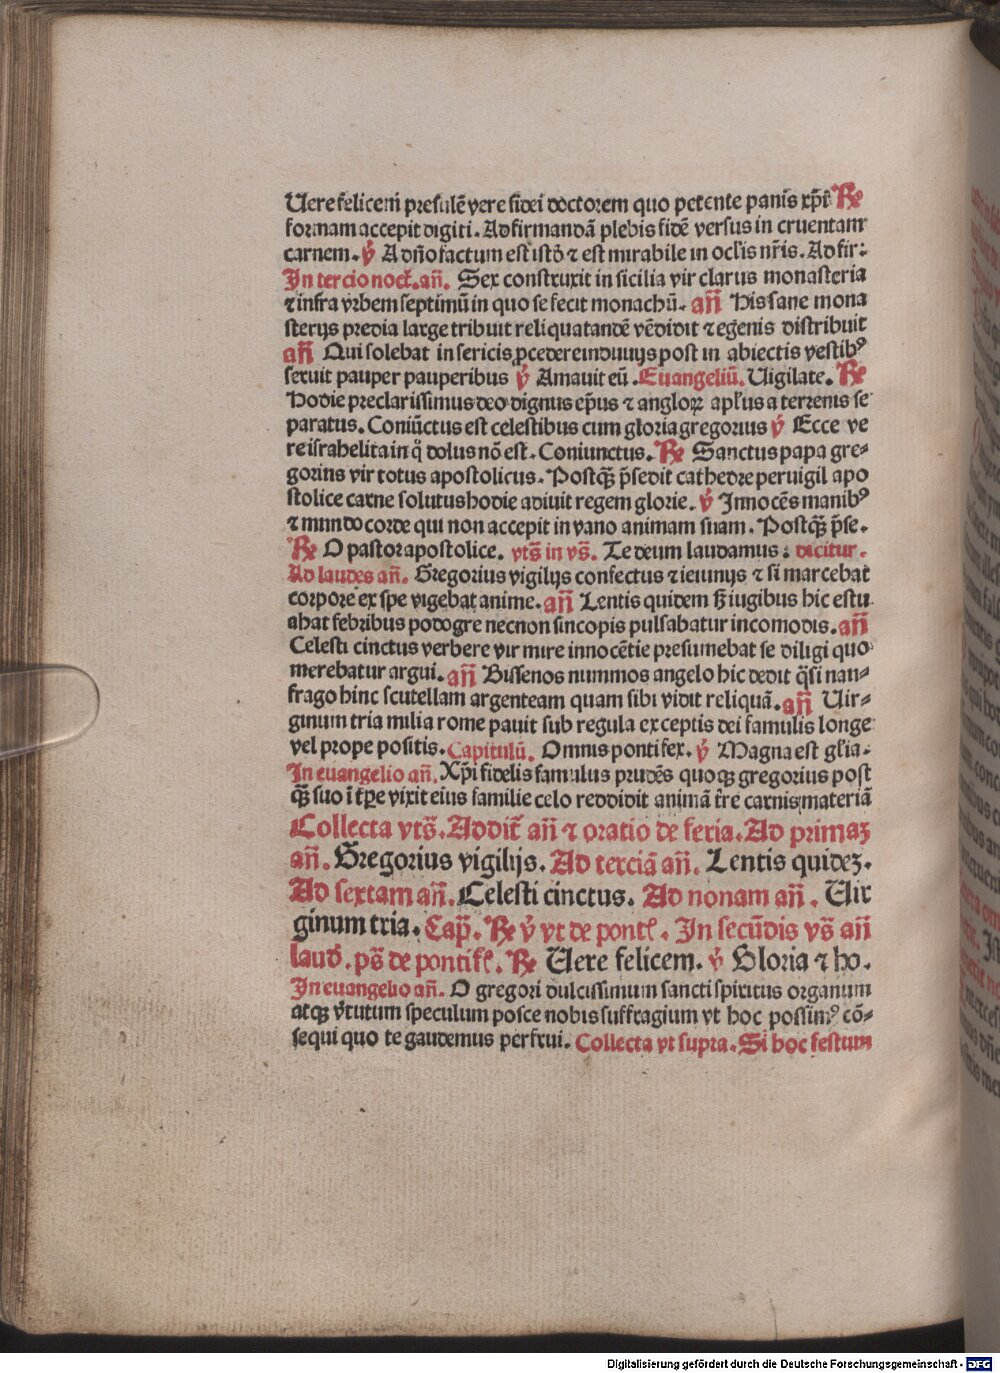 Uere felicem presulē vere fidei doctorem quo petente panis xp̄i ℟
formam accepit digiti. Ad firmandā plebis fidē versus in cruentam
carnem. ℣ A dn̄o factum est istō ⁊ est mirabile in oclis nr̄is. Ad fir:
In tercio noct̄. an̄. Sex construxit in sicilia vir clarus monasteria
⁊ infra vrbem septimū in quo se fecit monachū. an̄ His sane mona
sterijs predia large tribuit reliqua tandē vēdidit ⁊ egenis distribuit
an̄ Qui solebat in sericis ꝓcedere induuijs post in abiectis vestibꝰ
seruit pauper pauperibus ℣ Amauit eū. Euangeliū. Uigilate. ℟
Hodie preclarissimus deo dignus ep̄us ⁊ angloꝝ apl̄us a terrenis se
paratus. Coniūctus est celestibus cum gloria gregorius ℣ Ecce ve
re israhelita in q̄ dolus nō est. Coniunctus. ℟ Sanctus papa gre⸗
gorius vir totus apostolicus. Postqꝫ p̄sedit cathedre peruigil apo
stolice carne solutus hodie adiuit regem glorie. ℣ Innocēs manibꝰ
⁊ mundo corde qui non accepit in vano animam suam. Postqꝫ p̄se.
℟ O pastor apostolice. vts̄ in vs̄. Te deum laudamus: dicitur.
Ad laudes an̄. Gregorius vigilijs confectus ⁊ ieiunijs ⁊ si marcebat
corpore ex spe vigebat anime. an̄ Lentis quidem sꝫ iugibus hic estu
abat febribus podogre necnon sincopis pulsabatur incomodis. an̄
Celesti cinctus verbere vir mire innocētie presumebat se diligi quo
merebatur argui. an̄ Bissenos nummos angelo hic dedit q̄si nau⸗
frago hinc scutellam argenteam quam sibi vidit reliquā. an̄ Uir⸗
ginum tria milia rome pauit sub regula exceptis dei famulis longe
vel prope positis. Capitulū. Omnis pontifex. ℣ Magna est gl̄ia.
In euangelio an̄. Xp̄i fidelis famulus prudēs quoqꝫ gregorius post
qꝫ suo ī tp̄e vixit eius familie celo reddidit animā t̄re carnis materiā
Collecta vts̄. Addit̄ an̄ ⁊ oratio de feria. Ad primaꝫ
an̄. Gregorius vigilijs. Ad terciā an̄. Lentis quideꝫ.
Ad sextam an̄. Celesti cinctus. Ad nonam an̄. Uir
ginum tria. Cap̄. ℟ ℣ vt de pontl̄. In secūdis vs̄ an̄
laud̄. ps̄ de pontifl̄. ℟ Uere felicem. ℣ Gloria ⁊ ho.
In euangelio an̄. O gregori dulcissimum sancti spiritus organum
atqꝫ v̄tutum speculum posce nobis suffragium vt hoc possimꝰ cō⸗
sequi quo te gaudemus perfrui. Collecta vt supra. Si hoc festum
Digitalisierung gefördert durch die Deutsche Forschungsgemeinschaft - DFG